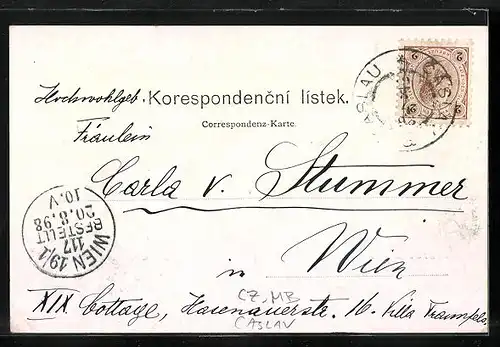 Hochwohlgeb. Korespondenční lístek.
Correspondenz-Karte.
Fräulein
Carla v. Stummer
Wien
in
XIX Cottage, Hasenauerstr. 16 Villa
CZ, MB
CASLAV
ČASLAU
2 2
2 2
WIEN 19/1
117
BESTELLT
20.8.98
10.V